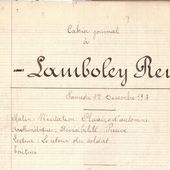 Cahier journal
à
Lamboley Re
Samedi 1er Décembre 19
Matin: Récitation: Plaisirs d'automne
Arithmétique: Divisibilité Preuve
Lecture: Le retour du soldat
Ecriture